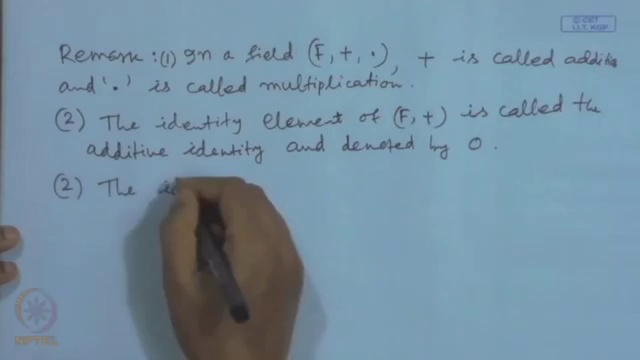 © CET
I.I.T. KGP
Remark : (1) In a field (F, +, ·), + is called additio
and '·' is called multiplication.
(2) The identity element of (F, +) is called the
additive identity and denoted by 0.
(2) The id
NPTEL